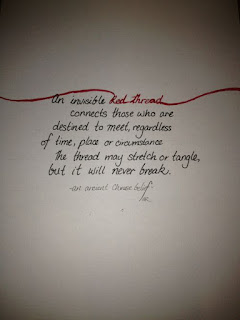 An invisible Red thread
connects those who are
destined to meet, regardless
of time, place or circumstance
The thread may stretch or tangle,
but it will never break.
-an ancient Chinese belief